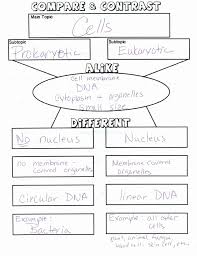 COMPARE & CONTRAST
Main Topic
Cells
Subtopic
Prokaryotic
Subtopic
Eukaryotic
ALIKE
Cell membrane
DNA
Cytoplasm + organelles
Small size
DIFFERENT
No nucleus
Nucleus
no membrane-
covered organelles
Membrane
covered organelles
Circular DNA
linear DNA
Example:
Bacteria
Example: all other
cells
plant, animal, fungus,
blood cells, skin cell, etc.